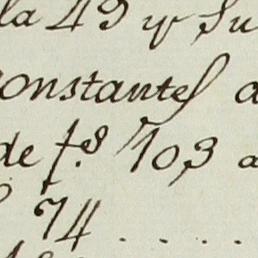 la 49 y su
constantes a
de f.s 103 a
74 . . . .